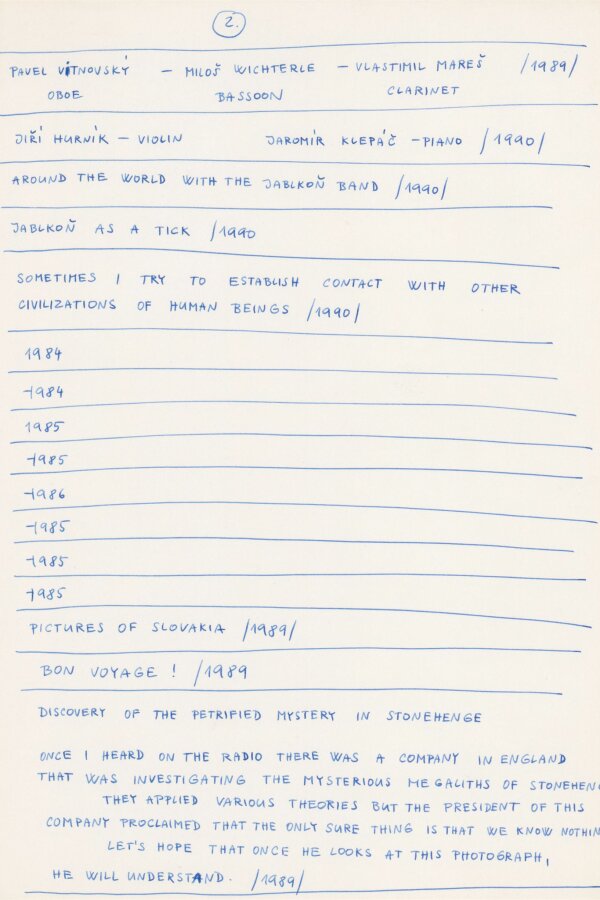 2.
PAVEL VÍTNOVSKÝ – MILOŠ WICHTERLE – VLASTIMIL MAREŠ /1989/
OBOE BASSOON CLARINET
JIŘÍ HURNÍK – VIOLIN JAROMÍR KLEPÁČ – PIANO /1990/
AROUND THE WORLD WITH THE JABLKOŇ BAND /1990/
JABLKOŇ AS A TICK /1990
SOMETIMES I TRY TO ESTABLISH CONTACT WITH OTHER
CIVILIZATIONS OF HUMAN BEINGS /1990/
1984
1984
1985
1985
1986
1985
1985
1985
PICTURES OF SLOVAKIA /1989/
BON VOYAGE ! /1989
DISCOVERY OF THE PETRIFIED MYSTERY IN STONEHENGE
ONCE I HEARD ON THE RADIO THERE WAS A COMPANY IN ENGLAND
THAT WAS INVESTIGATING THE MYSTERIOUS MEGALITHS OF STONEHENG
THEY APPLIED VARIOUS THEORIES BUT THE PRESIDENT OF THIS
COMPANY PROCLAIMED THAT THE ONLY SURE THING IS THAT WE KNOW NOTHIN
LET'S HOPE THAT ONCE HE LOOKS AT THIS PHOTOGRAPH,
HE WILL UNDERSTAND. /1989/